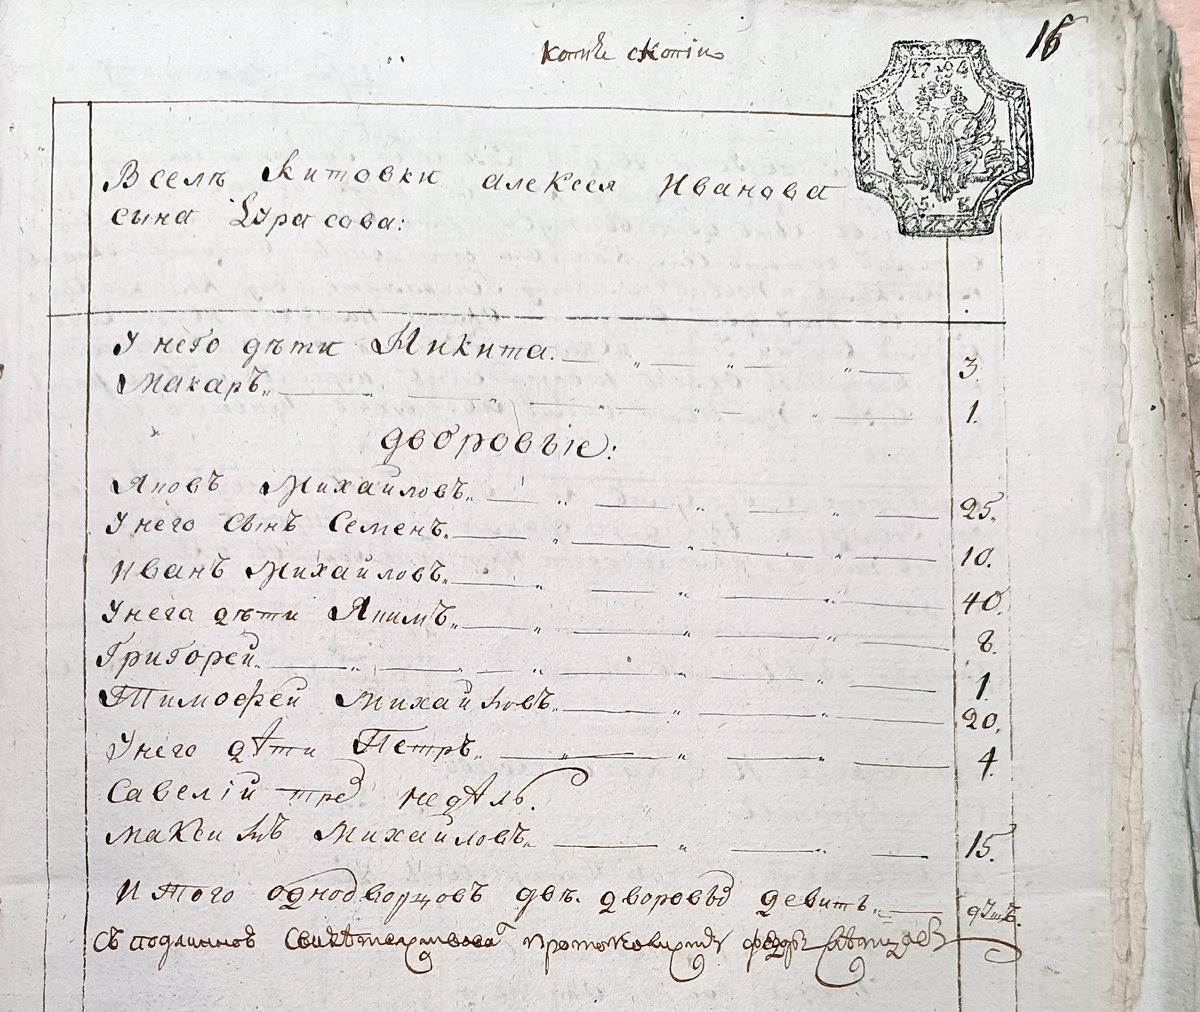 копие скопіи
16
1794
Вселѣ Китовки алексея Иванова
сына Бурасова:
У него дѣти Никита. 3
Макаръ. 1.
дворовыіе:
Яковъ Михайловъ. 25.
У него сынъ Семенъ. 10.
Иванъ Михайловъ. 40.
Унега дѣти Якимъ. 8.
Григорей. 1
Тимофей Михайловъ. 20.
Унего дѣти Петръ. 4.
Савелій трд недѣль.
Максимъ Михайловъ. 15.
И Того однодворцовъ двѣ. дворовыд девить. дꙋшъ.
Съ подлинной Свидѣтельствова протоколистъ федръ